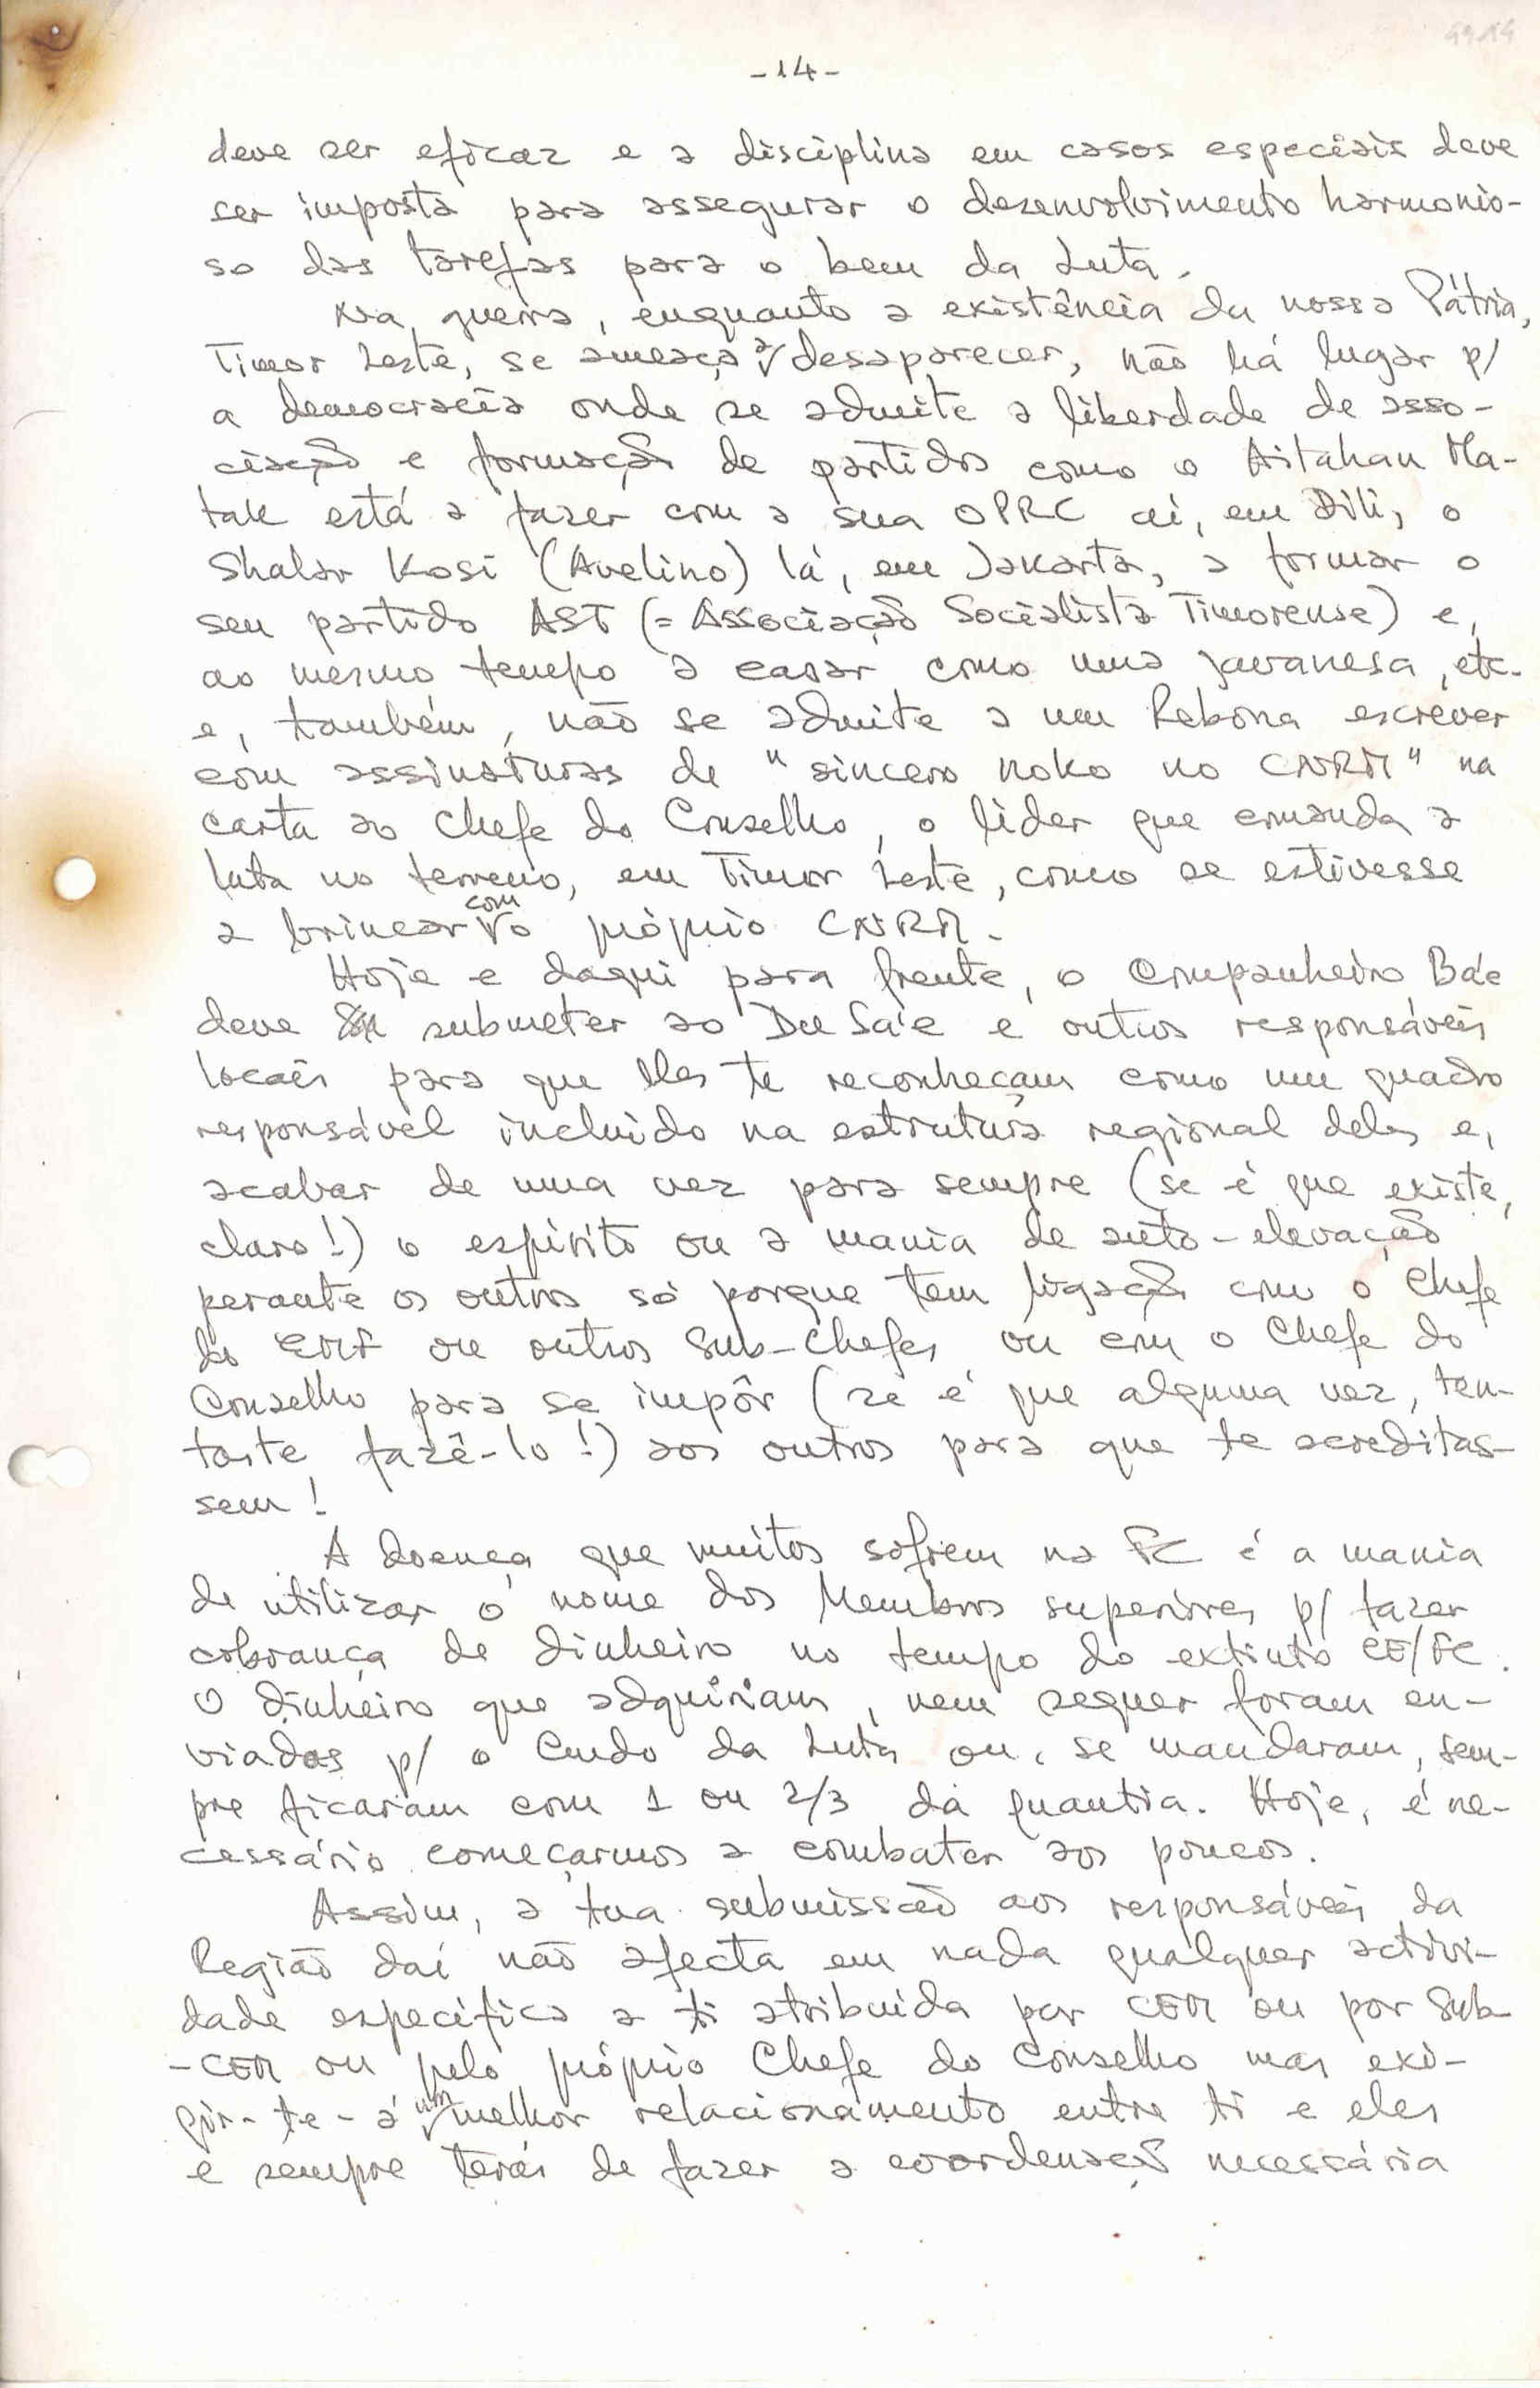 -14-
deve ser eficaz e a disciplina em casos especiais deve
ser imposta para assegurar o desenvolvimento harmonio-
so das tarefas para o bem da Luta.
Na guerra, enquanto a existência da nossa Pátria,
Timor Leste, se ameaça a desaparecer, não há lugar p/
a democracia onde se admite a liberdade de asso-
ciação e formação de partidos como o Aitahan Ma-
tak está a fazer com a sua OPRC aí, em Díli, o
Shalar Kosi (Avelino) lá, em Jakarta, a formar o
seu partido AST (= Associação Socialista Timorense) e,
ao mesmo tempo a casar como uma javanesa, etc.
e, também, não se admite a um Rebona escrever
com assinaturas de "sincero noko no CNRM" na
carta ao Chefe do Conselho, o líder que comanda a
luta no terreno, em Timor Leste, como se estivesse
a brincar com o próprio CNRM.
Hoje e daqui para frente, o Companheiro Bá'e
deve submeter ao Du Sa'e e outros responsáveis
locais para que eles te reconheçam como um quadro
responsável incluído na estrutura regional deles e,
acabar de uma vez para sempre (se é que existe,
claro!) o espírito ou a mania de auto-elevação
perante os outros só porque tem ligação com o Chefe
do EMF ou outros Sub-Chefes ou com o Chefe do
Conselho para se impôr (se é que alguma vez, ten-
taste fazê-lo!) aos outros para que te acreditas-
sem!
A doença que muitos sofrem na FC é a mania
de utilizar o nome dos Membros superiores p/ fazer
cobrança de dinheiro no tempo do extinto CE/FC.
O dinheiro que adquiriam, nem sequer foram en-
viados p/ o Cmdo da Luta ou, se mandaram, sem-
pre ficaram com 1 ou 2/3 da quantia. Hoje, é ne-
cessário começarmos a combater aos poucos.
Assim, a tua submissão aos responsáveis da
Região daí não afecta em nada qualquer activi-
dade específica a ti atribuída por CEM ou por Sub-
-CEM ou pelo próprio Chefe do Conselho mas exi-
gir-te-á um melhor relacionamento entre ti e eles
e sempre terás de fazer a coordenação necessária